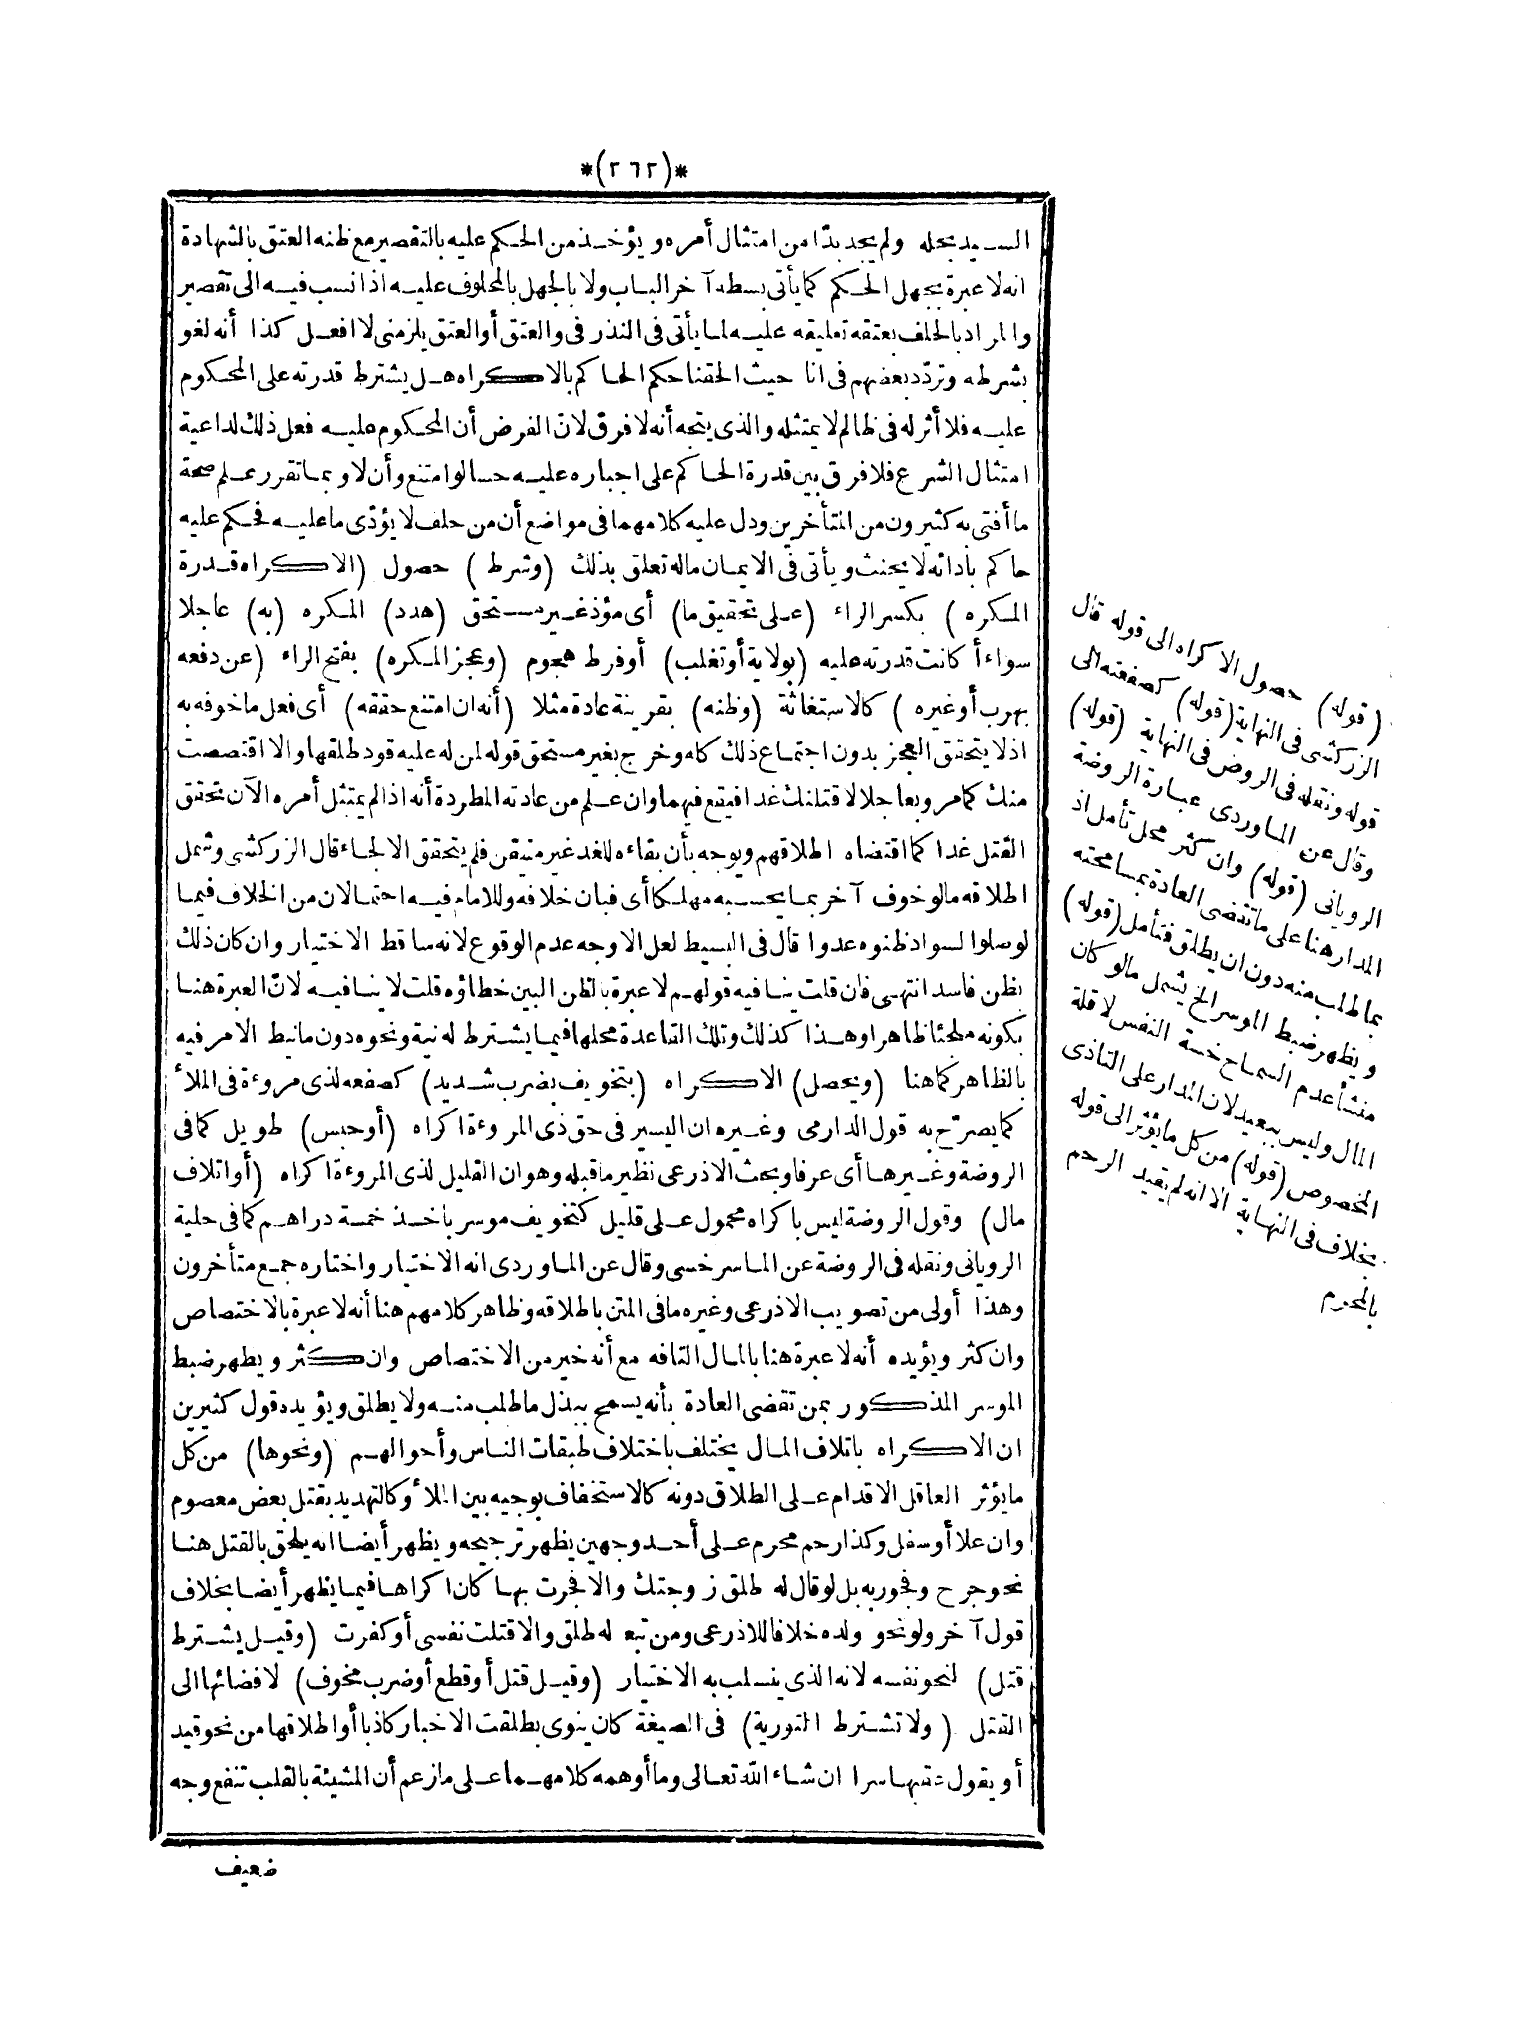 *(٢٦٢)*
السيد بحله ولم يجد بدّا من امتثال أمره ويؤخذ من الحكم عليه بالتقصير مع ظنه العتق بالشهادة
انه لا عبرة بجهل الحكم كما يأتى بسطه آخر الباب ولا بالجهل بالمحلوف عليه اذا نسب فيه الى تقصير
والمراد بالحلف بعتقه تعليقه عليه لما يأتى فى النذر فى والعتق أو العتق يلزمنى لا افعل كذا أنه لغو
بشرطه وتردّد بعضهم فى انا حيث الحقنا حكم الحاكم بالاكراه هل يشترط قدرته على المحكوم
عليه فلا أثر له فى ظالم لا يمتثله والذى يتجه أنه لا فرق لانّ الفرض أن المحكوم عليه فعل ذلك لداعية
امتثال الشرع فلا فرق بين قدرة الحاكم على اجباره عليه حسا لو امتنع وأن لا وبما تقرر علم صحة
ما أفتى به كثيرون من المتأخرين ودل عليه كلامهما فى مواضع أن من حلف لا يؤدّى ما عليه فحكم عليه
حاكم بأدائه لا يحنث ويأتى فى الايمان ماله تعلق بذلك (وشرط) حصول (الاكراه قدرة
المكره) بكسر الراء (على تحقيق ما) أى مؤذ غير مستحق (هدد) المكره (به) عاجلا
سواء أ كانت قدرته عليه (بولاية أو تغلب) أو فرط هجوم (وعجز المكره) بفتح الراء (عن دفعه
بهرب أو غيره) كالاستغاثة (وظنه) بقرينة عادة مثلا (أنه ان امتنع حققه) أى فعل ما خوفه به
اذ لا يتحقق العجز بدون اجتماع ذلك كله وخرج بغير مستحق قوله لمن له عليه قود طلقها والا اقتصصت
منك كما مر وبعاجلا لاقتلنك غدا فيقع فيهما وان علم من عادته المطردة أنه اذا لم يمتثل أمره الآن تحقق
القتل غدا كما اقتضاه اطلاقهم ويوجه بأن بقاءه للغد غير متيقن فلم يتحقق الالجاء قال الزركشى وشمل
اطلاقه مالو خوف آخر بما يحسبه مهلكا أى فبان خلافه وللامام فيه احتمالان من الخلاف فيما
لو صلوا لسواد ظنوه عدوا قال فى البسيط لعل الاوجه عدم الوقوع لانه ساقط الاختيار وان كان ذلك
بظن فاسد انتهى فان قلت ينافيه قولهم لا عبرة بالظن البين خطاؤه قلت لا ينافيه لانّ العبرة هنا
بكونه ملجئا ظاهرا وهذا كذلك وتلك القاعدة محلها فيما يشترط له نية ونحوه دون ما نيط الامر فيه
بالظاهر كما هنا (ويحصل) الاكراه (بتخويف بضرب شديد) كصفعه لذى مروءة فى الملأ
كما يصرّح به قول الدارمى وغيره ان اليسير فى حق ذى المروءة اكراه (أو حبس) طويل كما فى
الروضة وغيرها أى عرفا وبحث الاذرعى نظير ما قبله وهو ان القليل لذى المروءة اكراه (أو اتلاف
مال) وقول الروضة ليس باكراه محمول على قليل كتخويف موسر باخذ خمسة دراهم كما فى حلية
الرويانى ونقله فى الروضة عن الماسرخسى وقال عن الماوردى انه الاختيار واختاره جمع متأخرون
وهذا أولى من تصويب الاذرعى وغيره ما فى المتن باطلاقه وظاهر كلامهم هنا أنه لا عبرة بالاختصاص
وان كثر ويؤيده أنه لا عبرة هنا بالمال التافه مع أنه خير من الاختصاص وان كثر ويظهر ضبط
الموسر المذكور بمن تقضى العادة بأنه يسمح ببذل ما طلب منه ولا يطلق ويؤيده قول كثيرين
ان الاكراه باتلاف المال يختلف باختلاف طبقات الناس وأحوالهم (ونحوها) من كل
ما يؤثر العاقل الاقدام على الطلاق دونه كالاستخفاف بوجيه بين الملأ وكالتهديد بقتل بعض معصوم
وان علا أو سفل وكذا رحم محرم على أحد وجهين يظهر ترجيحه ويظهر أيضا انه يلحق بالقتل هنا
نحو جرح وفجور به بل لو قال له طلق زوجتك والا فجرت بها كان اكراها فيما يظهر أيضا بخلاف
قول آخر ولو نحو ولده خلافا للاذرعى ومن تبعه له طلق والا قتلت نفسى أو كفرت (وقيل يشترط
قتل) لنحو نفسه لانه الذى ينسلب به الاختيار (وقيل قتل أو قطع أو ضرب مخوف) لافضائها الى
القتل (ولا تشترط التورية) فى الصيغة كان ينوى بطلقت الاخبار كاذبا أو اطلاقها من نحو قيد
أو يقول عقبها سرا ان شاء الله تعالى وما أوهمه كلامهما على ما زعم أن المشيئة بالقلب تنفع وجه
ضعيف
(قوله) حصول الاكراه الى قوله قال
الزركشى فى النهاية (قوله) كصفعته الى
قوله ونقله فى الروض فى النهاية (قوله)
وقال عن الماوردى عبارة الروضة
الرويانى (قوله) وان كثر محل تأمل اذ
المدار هنا على ما تقتضى العادة بمسامحته
بما طلب منه دون ان يطلق فتأمل (قوله)
ويظهر ضبط الموسر الخ يشمل مالو كان
منشأ عدم السماح خسة النفس لا قلة
المال وليس ببعيد لان المدار على التاذى
المخصوص (قوله) من كل ما يؤثر الى قوله
بخلاف فى النهاية الا انه لم يقيد الرحم
بالمحرم